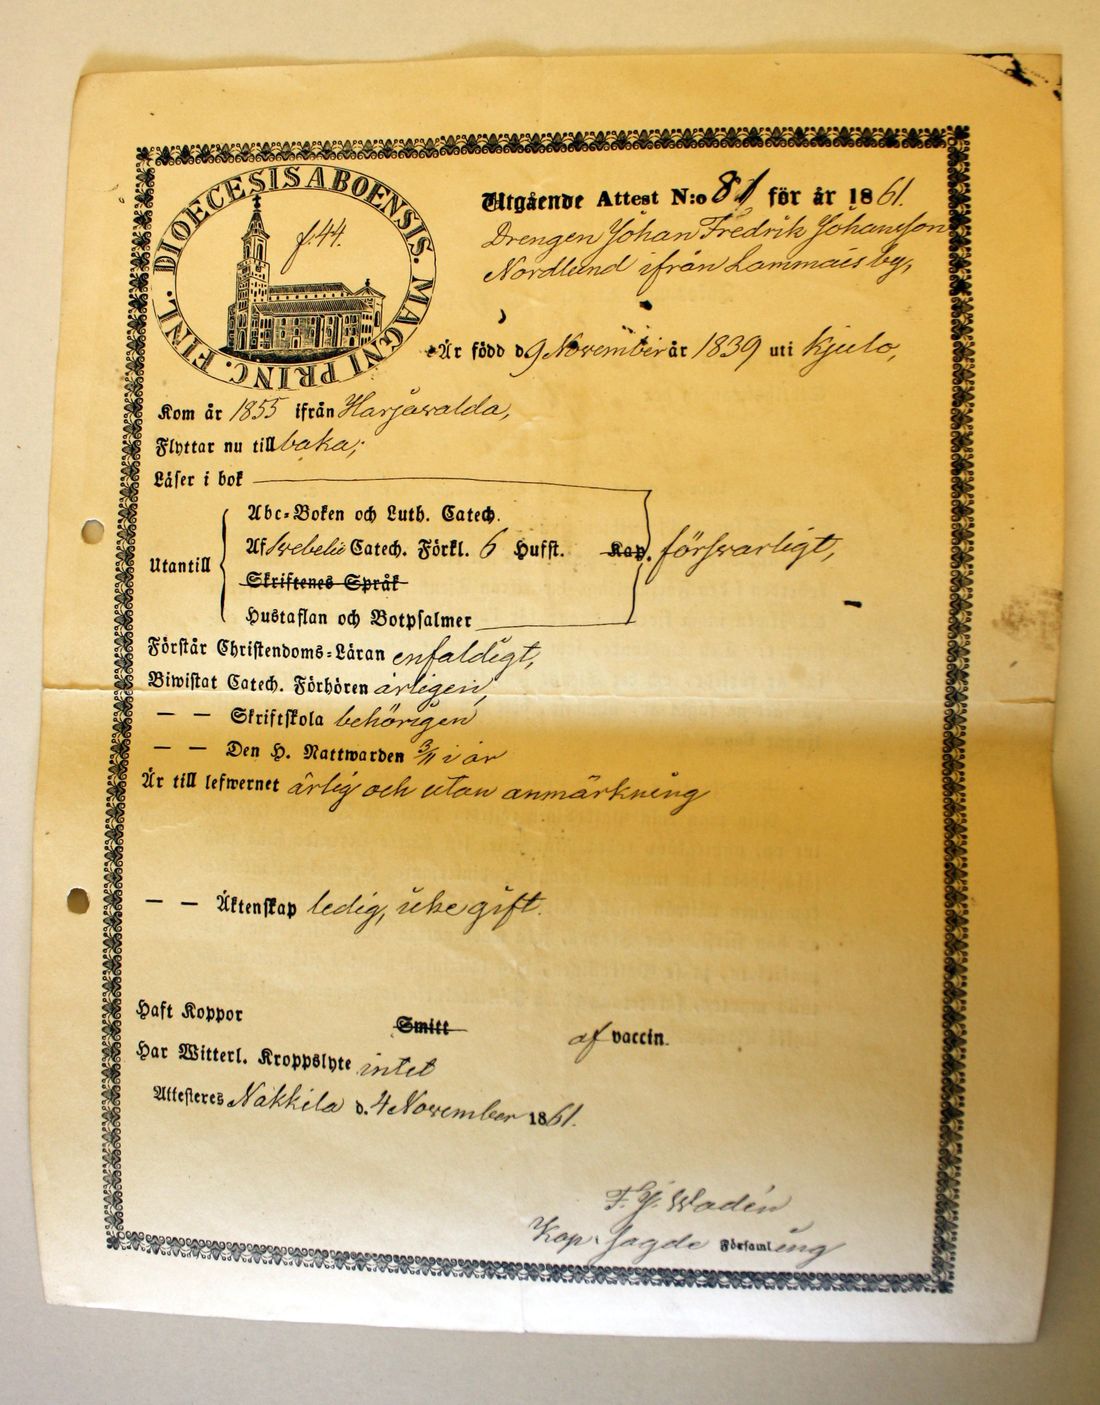 DIOECESIS ABOENSIS. MAGNI PRINC. FINL.
f. 44.
Utgående Attest N:o 81 för år 1861.
Drengen Johan Fredrik Johansson
Nordlund ifrån Lammais by,
Är född d 9 November år 1839 uti Kjulo,
Kom år 1855 ifrån Harjawalda,
Flyttar nu till baka;
Läser i bok
Abc-Boken och Luth. Catech.
Utantill Af Swebelii Catech. Förkl. 6 Hufst. Kap. försvarligt,
Skriftenes Språk
Hustaflan och Botpsalmer
Förstår Christendoms-Läran enfaldigt,
Biwistat Catech. Förhören årligen,
— — Skriftskola behörigen
— — Den H. Nattwarden 3/11 i år
Är till lefwernet ärlig och utan anmärkning
— — Äktenskap ledig, icke gift.
Haft Koppor Smitt af vaccin.
Har Witterl. Kroppslyte intet
Attesteres Nakkila d. 4 November 1861.
F. J. Wadén
Kap. Sagde Församling